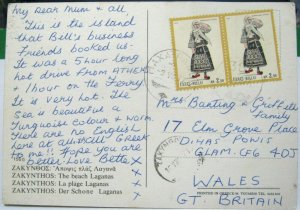 My dear Mum & all.
This is the island
that Bill's business
friends booked us.
It was a 5 hour long
hot drive from ATHENS
& 1 hour on the Ferry
It is very hot. The
Sea is beautiful a
Turquoise colour & warm.
There are no English
here at all all Greek
to me!! Hope you are
better Love Bette x
x x x
ΖΑΚΥΝΘΟΣ: Ἄποψις πλὰζ Λαγανᾶ
ZAKYNTHOS: The beach Laganas
ZAKYNTHOS: La plage Laganas
ZAKYNTHOS: Der Schone Laganas
ΕΛΛΑΣ-HELLAS ΔΡ. 2,50
ΕΛΛΑΣ-HELLAS ΔΡ. 2,50
Mrs Banting & Griffiths
Family
17 Elm Grove Place
DINAS POWIS
GLAM. CF6 4DJ
WALES
GT. BRITAIN